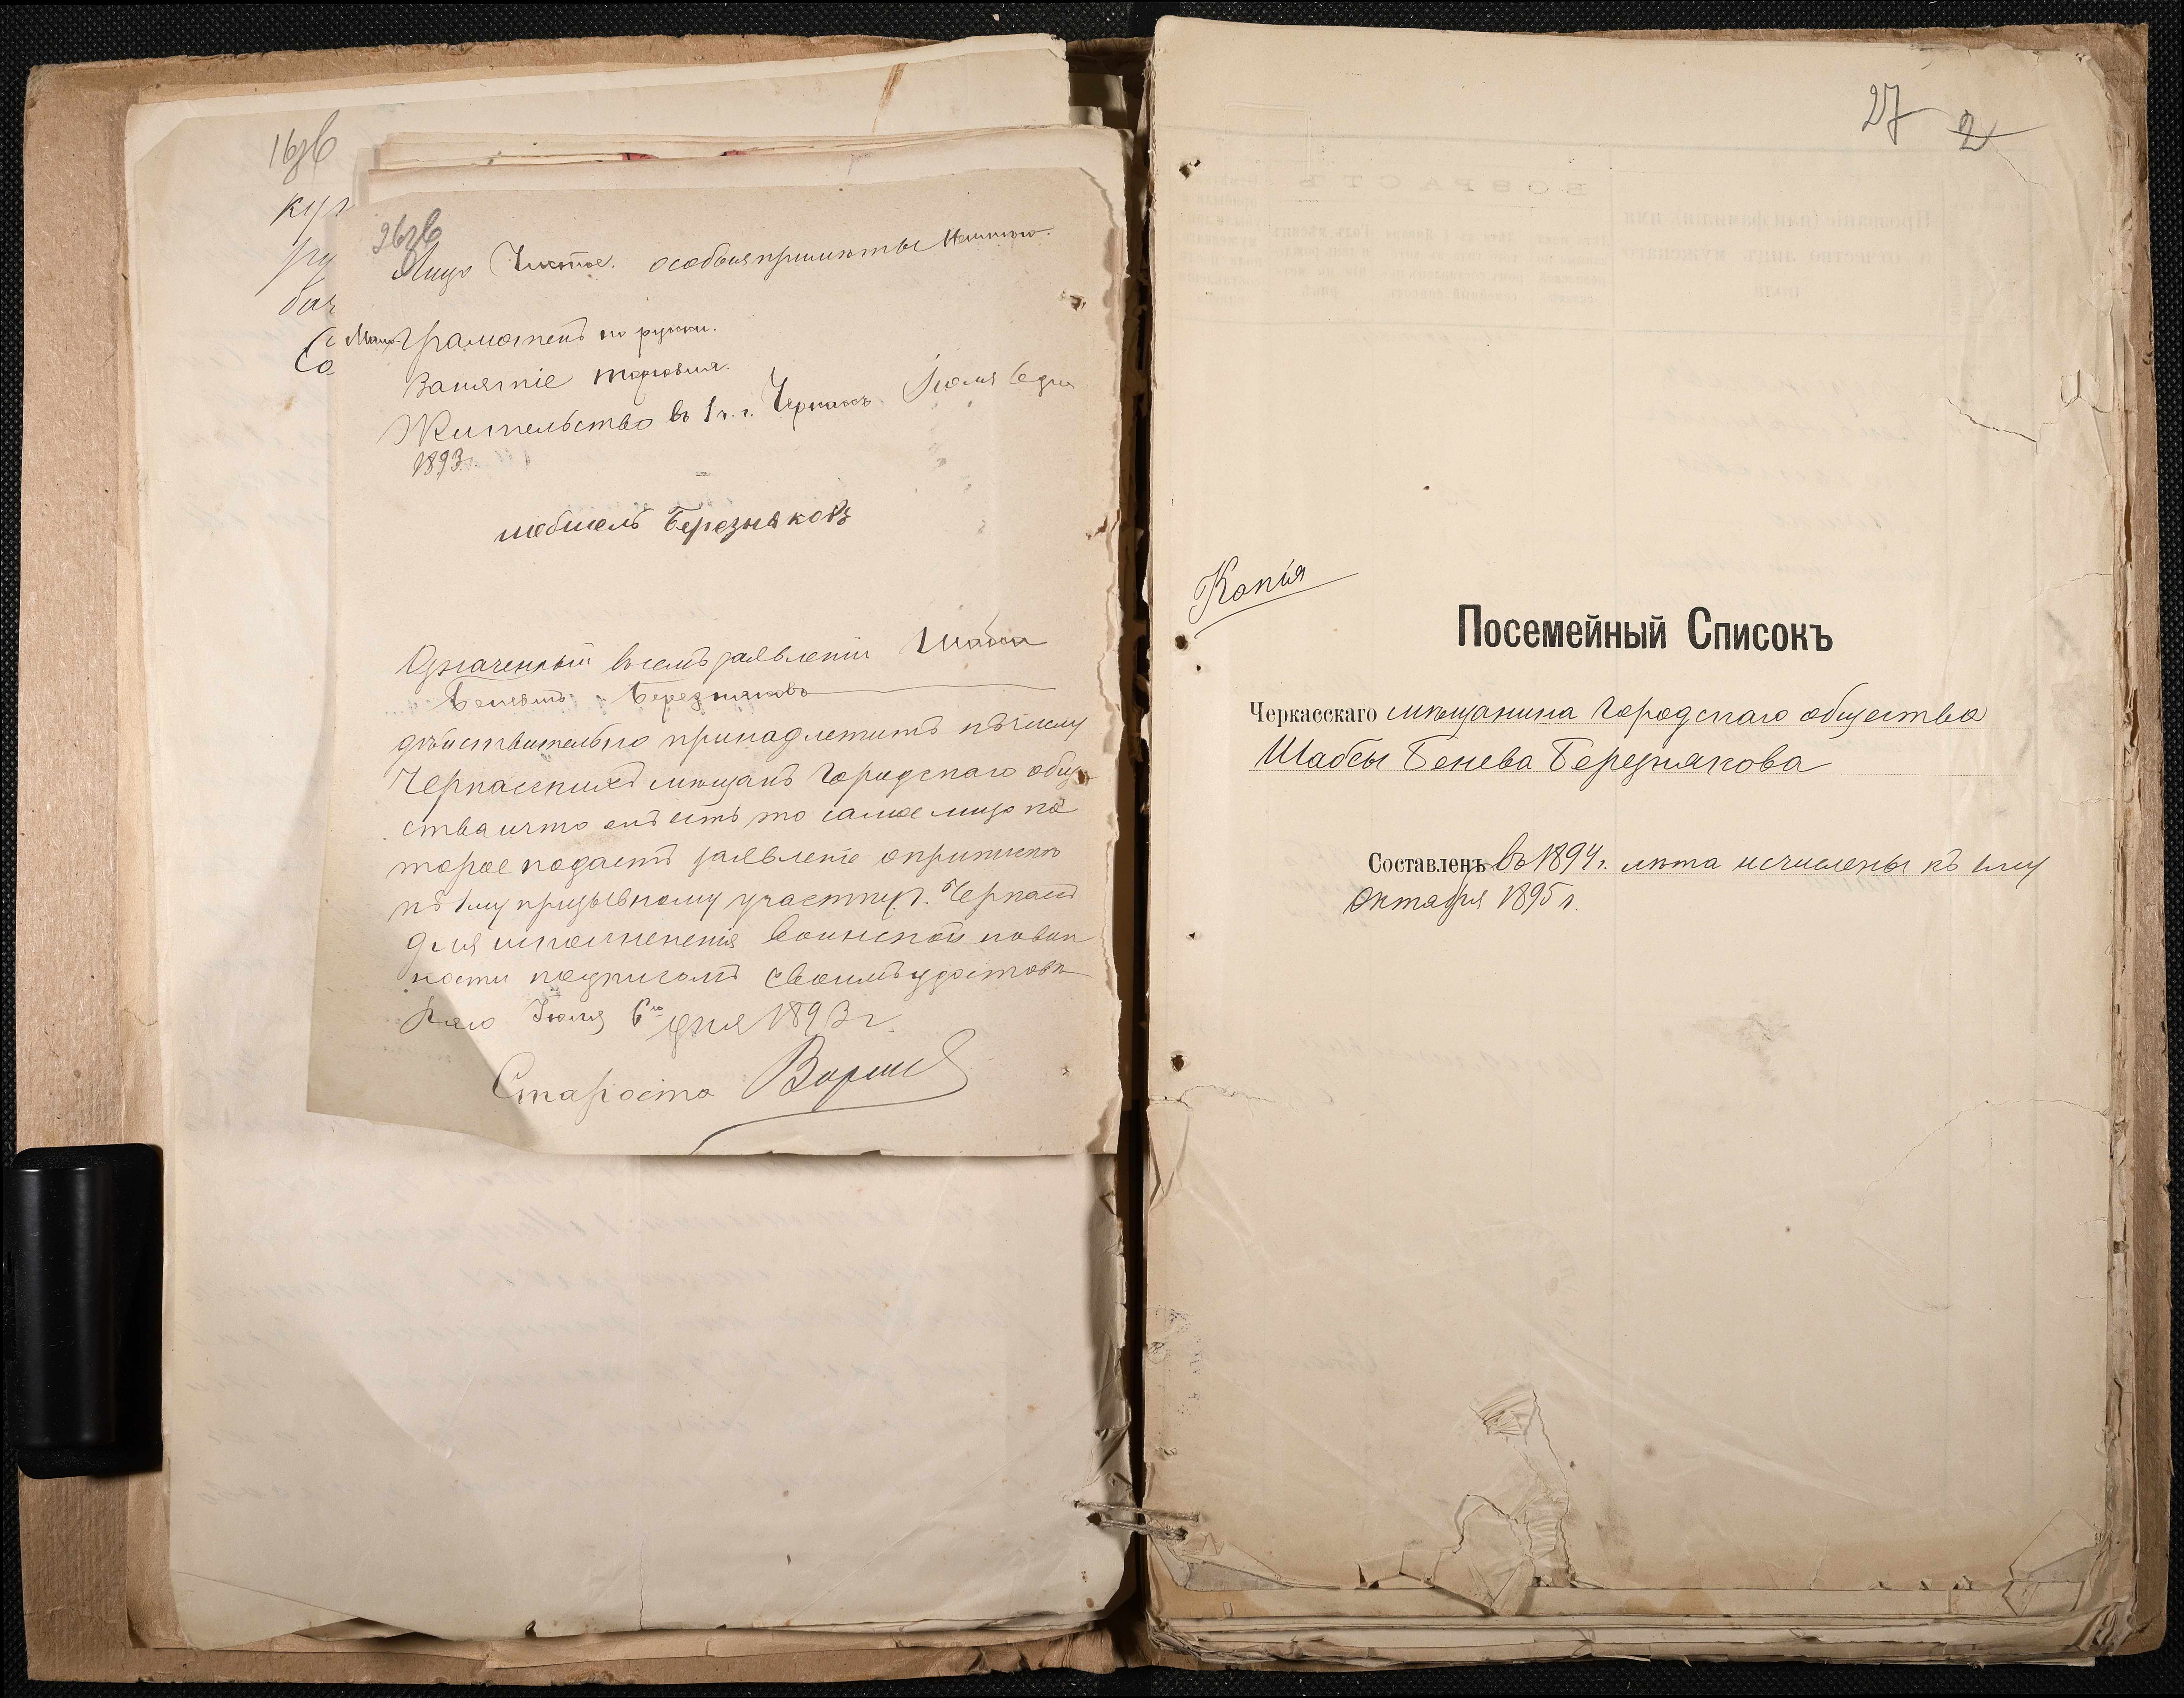 16зв
кут
ру
26зв
Лицо Чистое. особыя приметы Неимею.
Мало Грамотенъ по руски.
Занятіе торговля.
Жительство въ 1 ч. г. Черкассъ Іюля 6 дня
1893 г.
Березняковъ
Означенный въ семъ заявленіи Шабса
Беневъ Березняковъ
действительно принадлежитъ къ числу
Черкасскихъ мещанъ Городскаго обще
ства и что онъ есть то самое лицо ко
торое подаетъ заявленіе о приписке
къ 1му призывному участку г. Черкассъ
для исполненія воинской повин
ности подписомъ своимъ удостове
ряю Іюля 6го дня 1893 г.
Староста
27 2
Копія
Посемейный Списокъ
Черкасскаго мѣщанина Городскаго общества
Шабсы Бенева Березнякова
Составленъ въ 1894 г. лѣта исчислены къ 1му
Октября 1895 г.